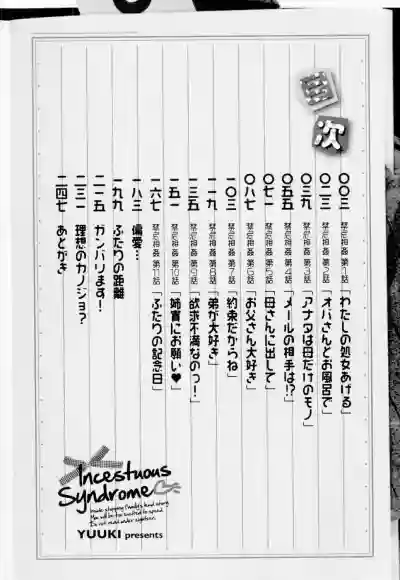 目次
〇〇三 禁忌相姦 第1話「わたしの処女あげる」
〇二三 禁忌相姦 第2話「オバさんとお風呂で」
〇三九 禁忌相姦 第3話「アナタは母だけのモノ」
〇五五 禁忌相姦 第4話「メールの相手は!?」
〇七一 禁忌相姦 第5話「母さんに出して」
〇八七 禁忌相姦 第6話「お父さん大好き」
一〇三 禁忌相姦 第7話「約束だからね」
一一九 禁忌相姦 第8話「弟が大好き」
一三五 禁忌相姦 第9話「欲求不満なのっ!」
一五一 禁忌相姦 第10話「姉貴にお願い♥」
一六七 禁忌相姦 第11話「ふたりの記念日」
一八三 偏愛…
一九九 ふたりの距離
二一五 ガンバリます!
二三一 理想のカノジョ?
二四七 あとがき
Incestuous
Syndrome
Do not read under eighteen.
YUUKI presents